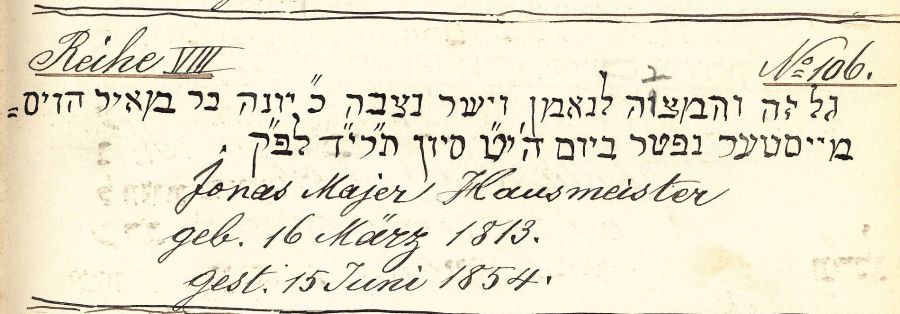 Reihe VIII № 106.
גל זה והמצוה לנאמן וישר נצבה כ״ יונה בר מאיר הויס=
מייסטער נפטר ביום ה׳ י״ט סיון תרי״ד לפ״ק
Jonas Majer Hausmeister
geb. 16 März 1813.
gest. 15 Juni 1854.